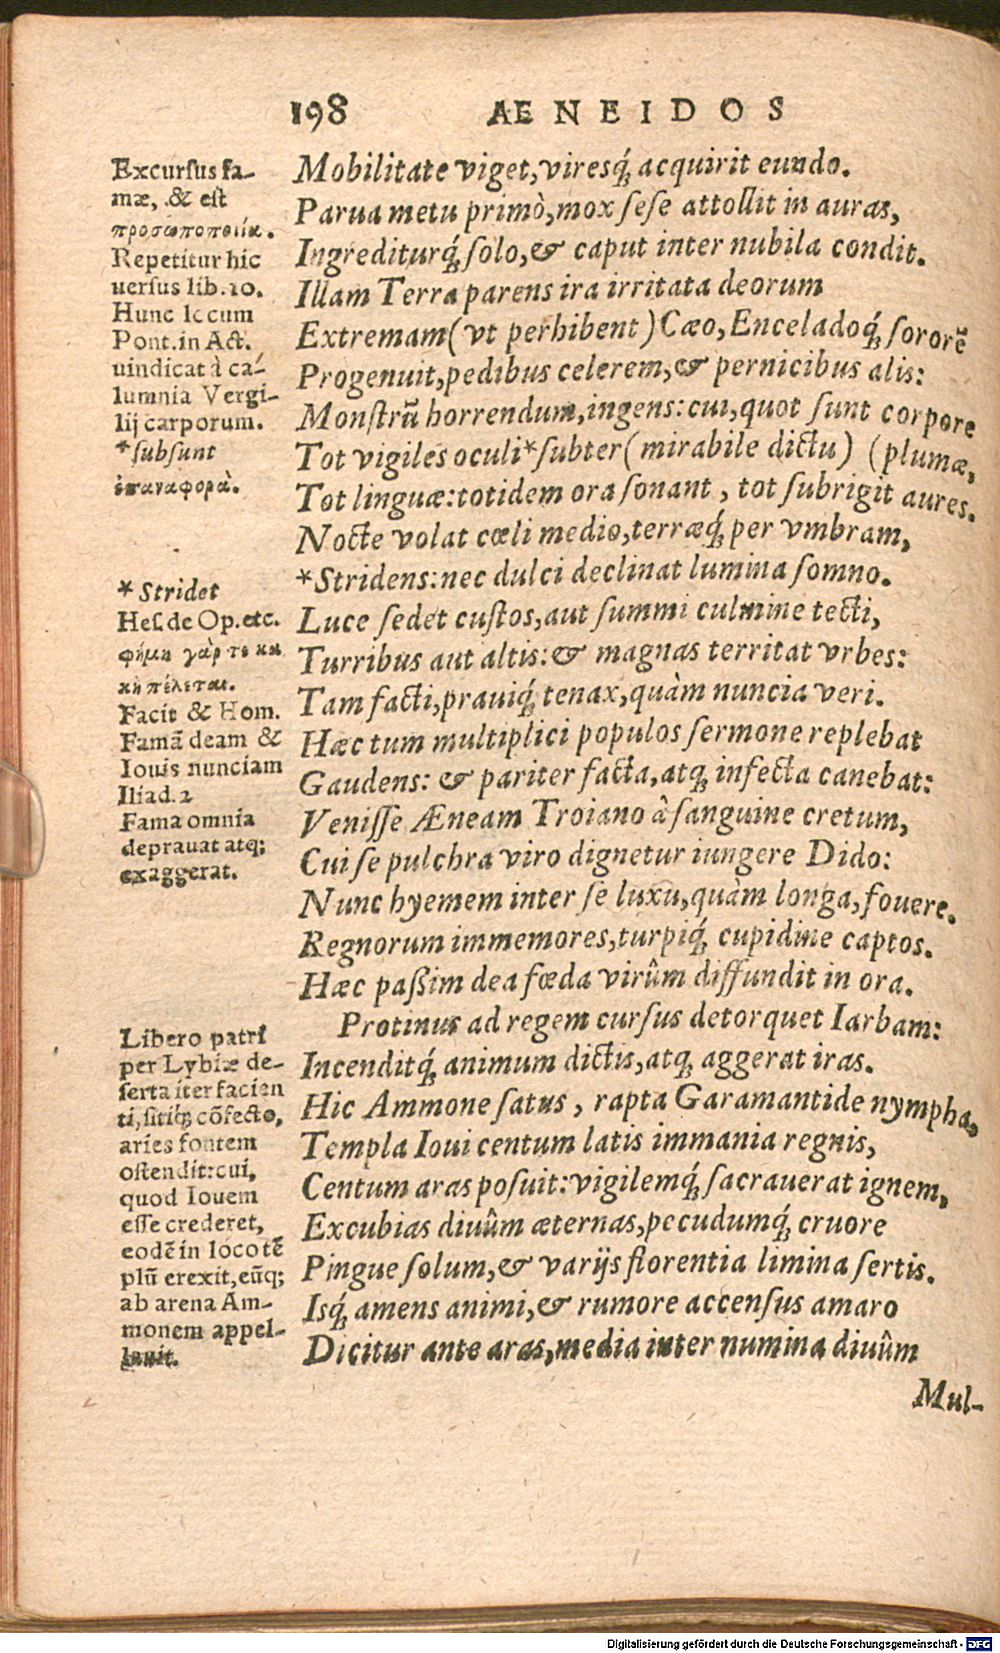 198 AENEIDOS
Excurſus fa-
mæ, & eſt
προσωποποιία.
Repetitur hic
uerſus lib. 10.
Hunc locum
Pont. in Act.
uindicat à ca-
lumnia Vergi-
lij carporum.
*ſubſunt
ἐπαναφορὰ.
* Stridet
Heſ. de Op. etc.
φήμη γάρ τε κα
κὴ πέλεται.
Facit & Hom.
Famã deam &
Iouis nunciam
Iliad. 2
Fama omnia
deprauat atq;
exaggerat.
Libero patri
per Lybiæ de-
ſerta iter facien
ti, ſitiq́ꝫ cõfecto,
aries fontem
oſtendit: cui,
quod Iouem
eſſe crederet,
eodẽ in loco tẽ
plũ erexit, eũq;
ab arena Am-
monem appel-
lauit.
Mobilitate viget, viresq́ꝫ acquirit eundo.
Parua metu primò, mox ſeſe attollit in auras,
Ingrediturq́ꝫ ſolo, & caput inter nubila condit.
Illam Terra parens ira irritata deorum
Extremam (vt perhibent) Cæo, Enceladoq́ꝫ ſororẽ
Progenuit, pedibus celerem, & pernicibus alis:
Monſtrũ horrendum, ingens: cui, quot ſunt corpore
Tot vigiles oculi *ſubter (mirabile dictu) (plumæ,
Tot linguæ: totidem ora ſonant, tot ſubrigit aures.
Nocte volat cœli medio, terræq́ꝫ per vmbram,
*Stridens: nec dulci declinat lumina ſomno.
Luce ſedet cuſtos, aut ſummi culmine tecti,
Turribus aut altis: & magnas territat vrbes:
Tam facti, prauiq́ꝫ tenax, quàm nuncia veri.
Hæc tum multiplici populos ſermone replebat
Gaudens: & pariter facta, atqꝫ infecta canebat:
Veniſſe Æneam Troiano à ſanguine cretum,
Cui ſe pulchra viro dignetur iungere Dido:
Nunc hyemem inter ſe luxu, quàm longa, fouere.
Regnorum immemores, turpiq́ꝫ cupidine captos.
Hæc paßim dea fœda virûm diffundit in ora.
Protinus ad regem curſus detorquet Iarbam:
Incenditq́ꝫ animum dictis, atqꝫ aggerat iras.
Hic Ammone ſatus, rapta Garamantide nympha,
Templa Ioui centum latis immania regnis,
Centum aras poſuit: vigilemq́ꝫ ſacrauerat ignem,
Excubias diuûm æternas, pecudumq́ꝫ cruore
Pingue ſolum, & varijs florentia limina ſertis.
Isq́ꝫ amens animi, & rumore accenſus amaro
Dicitur ante aras, media inter numina diuûm
Mul-
Digitalisierung gefördert durch die Deutsche Forschungsgemeinschaft - DFG